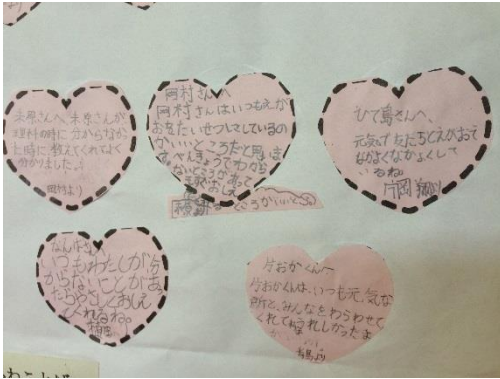 原さんへ 原さんが
理科の時に分からなかっ
た時に教えてくれてよく
分かりました。
岡村より
岡村さんへ
岡村さんはいつもえが
おをたいせつにしているの
がいいところだと思いま
す。べんきょうでわから
ないところがあって
ところがいいと
ひで島さんへ、
元気で友だちとえがおで
なかよくなかよくして
いるね
片岡
なんばさん
いつもわたしが分
からないことがあ
たらやさしくおしえ
てくれるね。
片おかくんへ
片おかくんは、いつも元気な
所と、みんなをわらわせて
くれてうれしかったよ